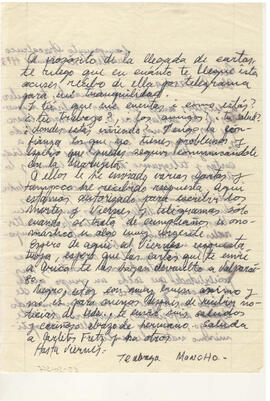 A propósito de la llegada de cartas,
te ruego que en cuánto te llegue ésta
acuses recibo de ella por telegrama
para mi tranquilidad.
Y tú que me cuentas ¿ cómo estás?
¿ tu trabajo? ¿ los amigos?, ¿ tu salud?
¿ dónde estás viviendo? Tengo la con-
fianza los que no tienes problemas y
que puedes seguir comunicándote
con la
A ellos le he enviado varias cartas y
tampoco he recibido respuesta. Aquí
estamos autorizados para escribir los
Martes y Viernes, y telegramas solo
cuando se trata de cumpleaños u ono-
mástico, o algo muy urgente.
Espero de aquí al Viernes respuesta
tuya, espero que las cartas que te envié
a Arica te las hayan devuelto a Valparaí-
so.
Negro, estoy con muy buen ánimo y
no es para menos después de recibir no-
ticias de Uds., te envío mis saludos
y cariñoso abrazo de hermano. Saluda
a Carlitos, Fritz y los otros.
Hasta Viernes.
Te abraza MONCHO.-